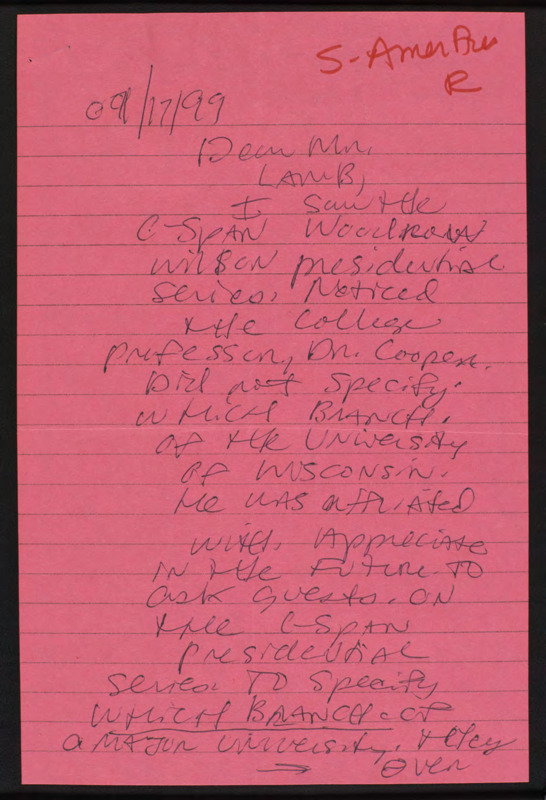 S-Amer Pres
R
09/17/99
Dear Mr.
LAMB,
I saw the
C-SPAN WOODROW
WILSON presidential
series. Noticed
the College
professor, Dr. Cooper.
Did not specify.
WHICH BRANCH.
of the UNIVERSITY
OF WISCONSIN.
He WAS affiliated
with. Appreciate
IN the FUTURE TO
ask guests. ON
the C-SPAN
presidential
series. TO Specify
WHICH BRANCH of
a MAJOR UNIVERSITY. they
→ OVER